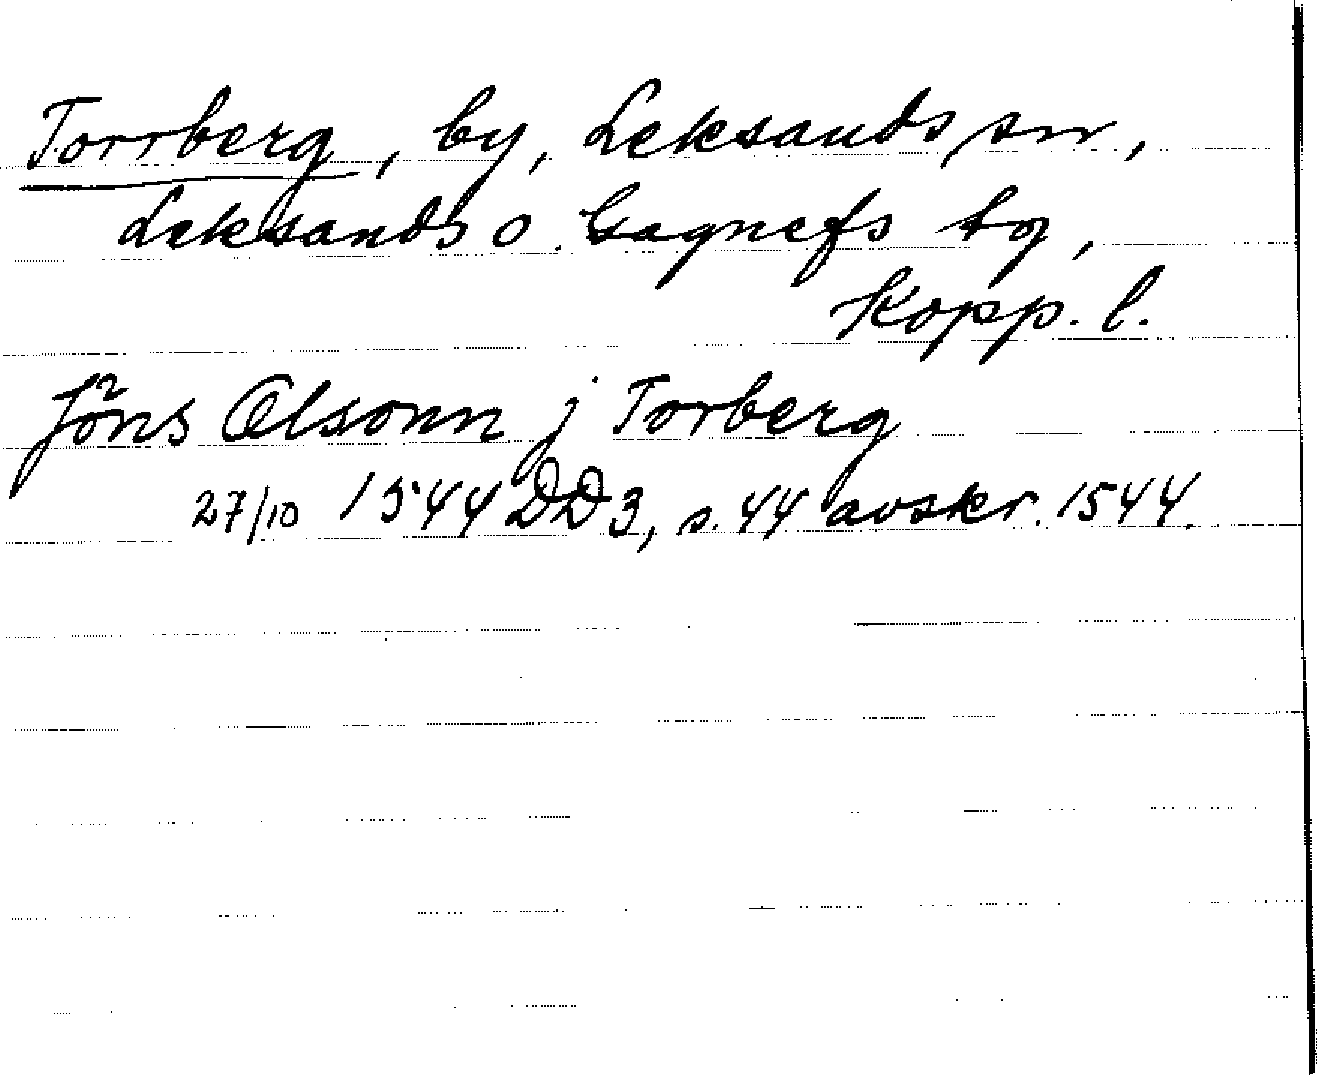 Torrberg, by, Leksands sn,
Leksands o. Gagnefs tg,
Kopp. l.
Jöns Olsonn j Torberg
27/10 1544 DD3, s. 44 avskr. 1544.